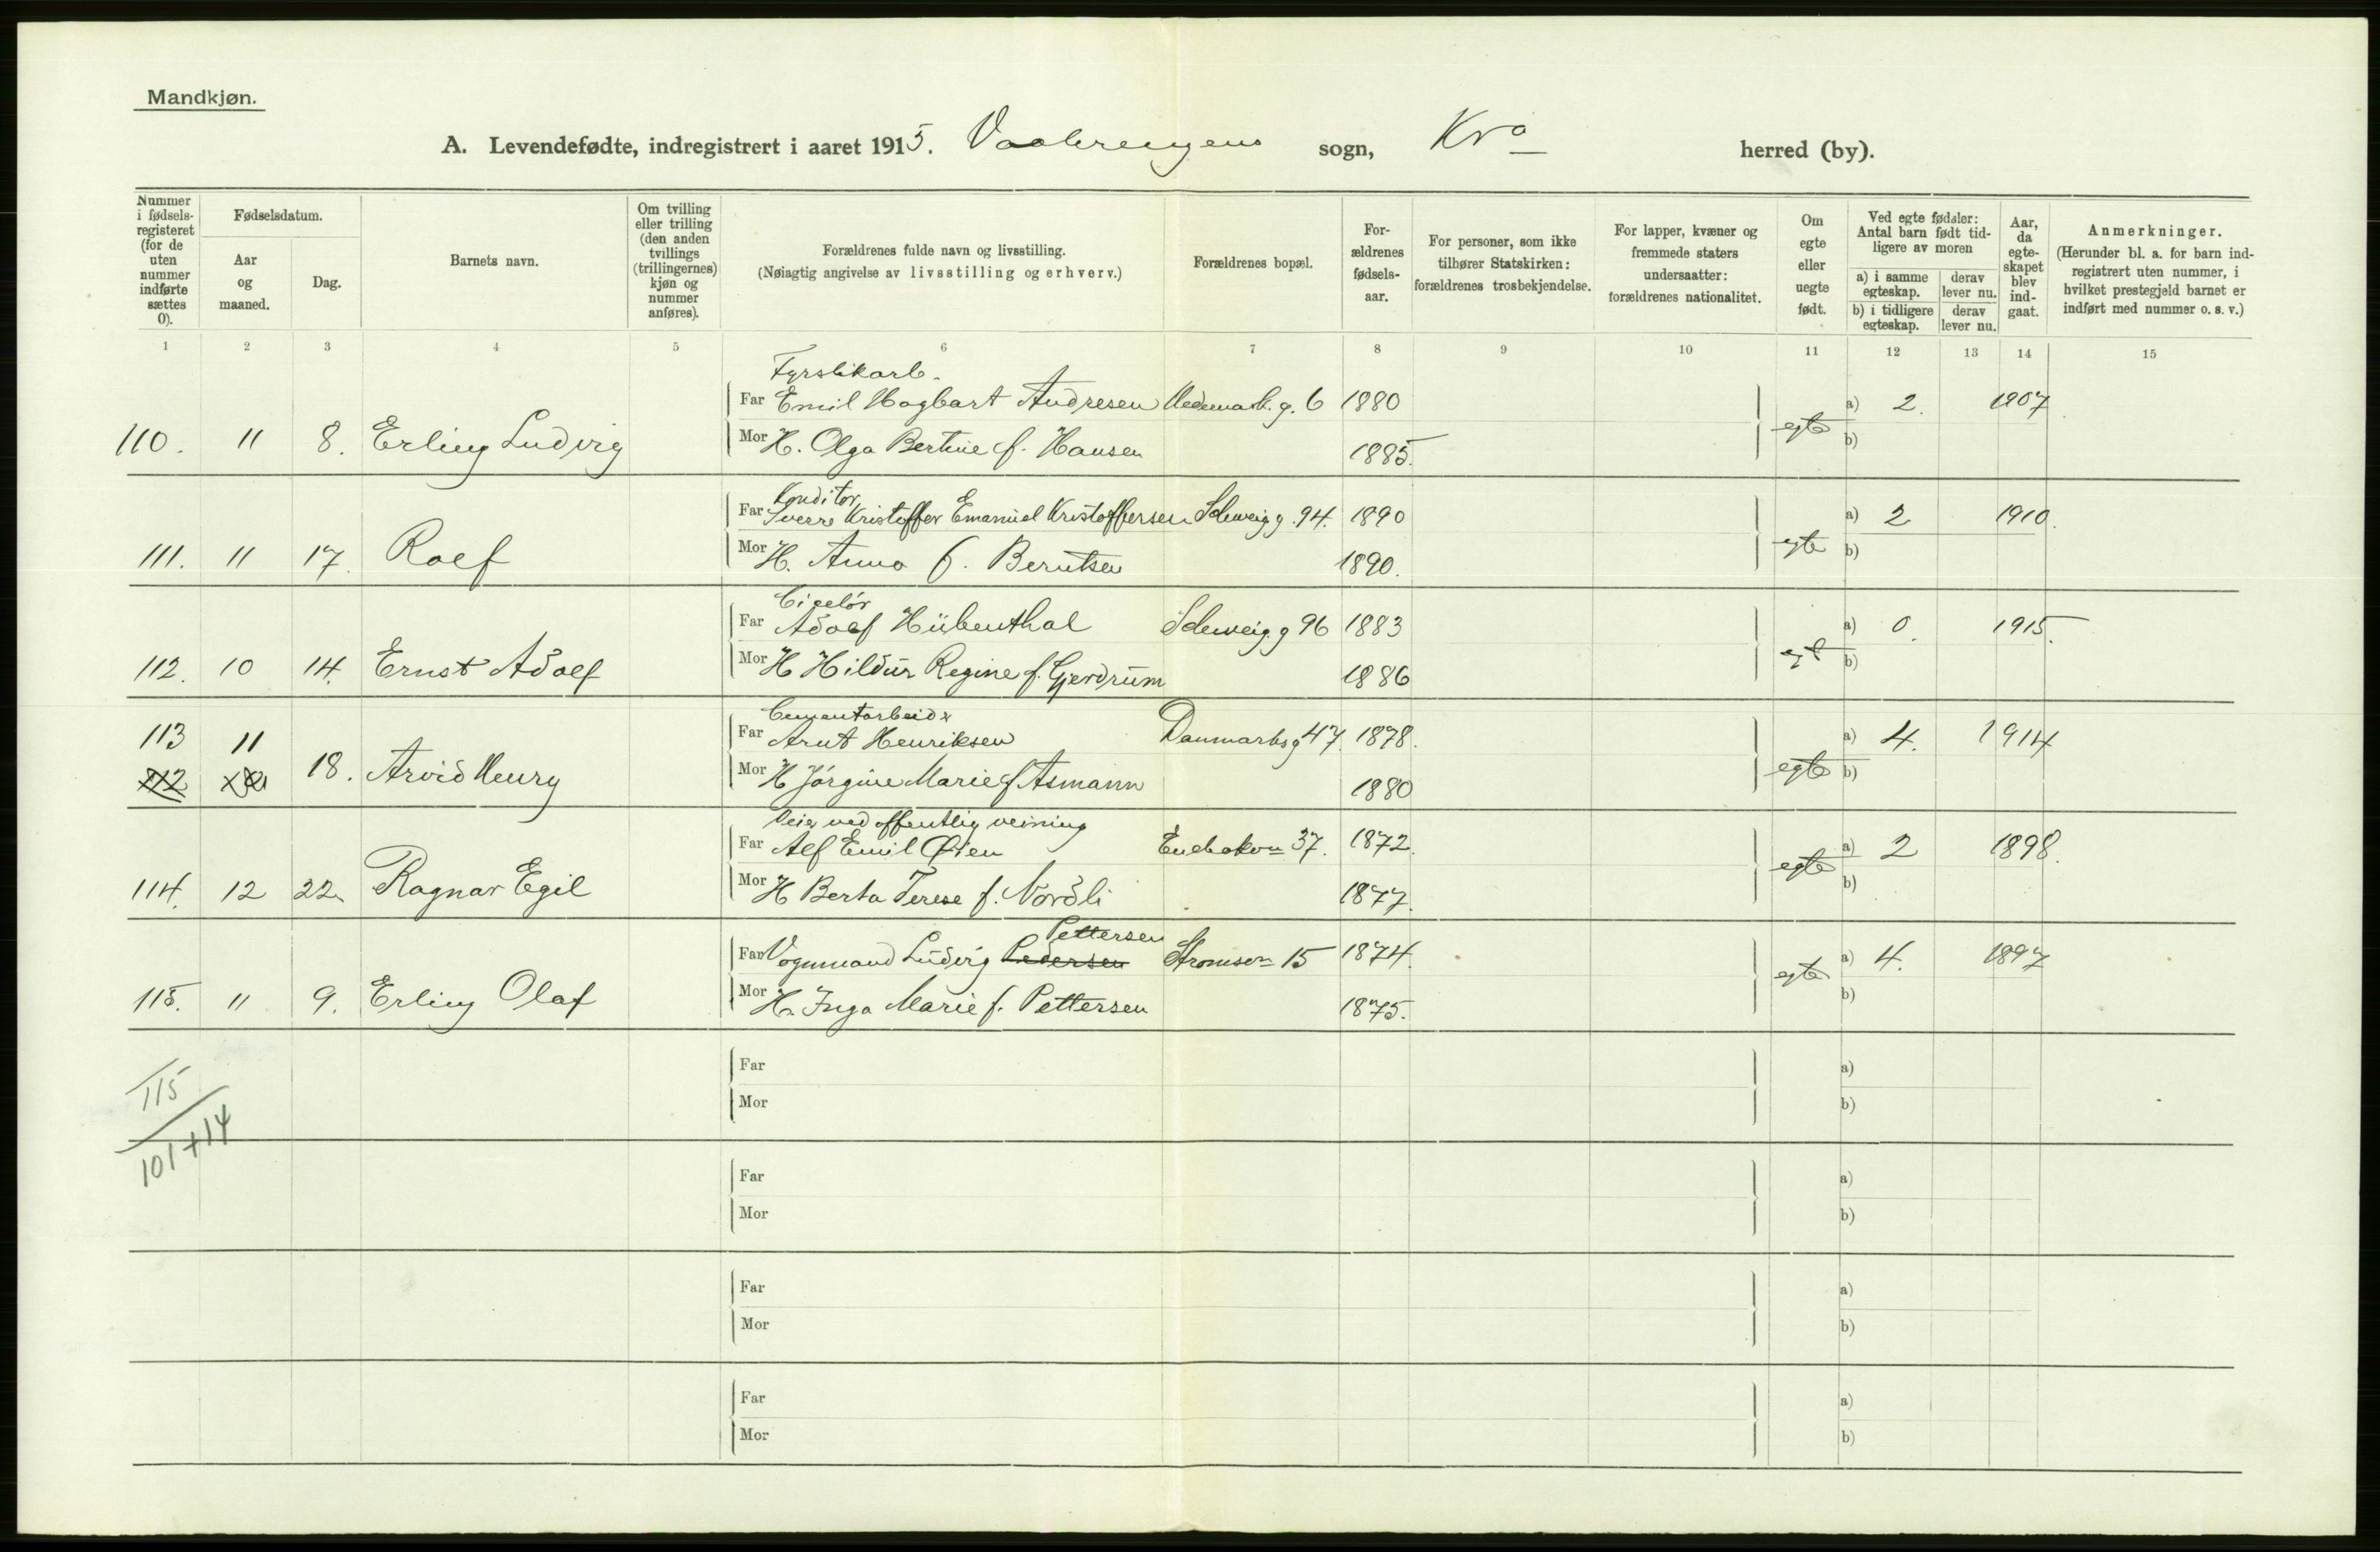 Mandkjøn.
A. Levendefødte, indregistrert i aaret 1915. Vaalerengens sogn, Kra herred (by).
Nummer i fødsels-registeret (for de uten nummer indførte sættes 0).
Fødselsdatum.
Aar og maaned.
Dag.
Barnets navn.
Om tvilling eller trilling (den anden tvillings (trillingernes) kjøn og nummer anføres).
Forældrenes fulde navn og livsstilling.
(Nøiagtig angivelse av livsstilling og erhverv.)
Forældrenes bopæl.
For-ældrenes fødsels-aar.
For personer, som ikke tilhører Statskirken: forældrenes trosbekjendelse.
For lapper, kvæner og fremmede staters undersaatter: forældrenes nationalitet.
Om egte eller uegte født.
Ved egte fødsler: Antal barn født tid-ligere av moren
a) i samme egteskap.
derav lever nu.
b) i tidligere egteskap.
derav lever nu.
Aar, da egte-skapet blev ind-gaat.
Anmerkninger.
(Herunder bl. a. for barn ind-registrert uten nummer, i hvilket prestegjeld barnet er indført med nummer o. s. v.)
1 2 3 4 5 6 7 8 9 10 11 12 13 14 15
Fyrstikarb.
Far Emil Hagbart Andresen Hedemark.g. 6 1880 a) 2. 1907
110. 11 8. Erling Ludvig Mor H. Olga Bertine f. Hansen 1885. egte b)
Konditor
Far Sverre Kristoffer Emanuel Kristoffersen Schweigg. 94. 1890 a) 2 1910.
111. 11 17. Rolf Mor H. Anna f. Berntsen 1890. egte b)
Ciselør
Far Adolf Hübenthal Schweig.g 96 1883 a) 0. 1915.
112. 10 14. Ernst Adolf Mor H Hildur Regine f. Gjerdrum 1886 egt b)
Cementarbeider
113 11 Far Arnt Henriksen Danmarksg 47. 1878. a) 4. 1914
112 18. Arvid Henry Mor H Jørgine Marie f Asmann 1880 egte b)
Veier ved offentlig veining
Far Alf Emil Øien Enebakvn 37. 1872. a) 2 1898.
114. 12 22. Ragnar Egil Mor H Berta Terese f. Nordli 1877. egte b)
Pettersen
Far Vognmand Ludvig Pedersen Strømsvn 15 1874. a) 4. 1897
115. 11 9. Erling Olaf Mor H. Inga Marie f. Pettersen 1875. egte b)
115
Far a)
Mor b)
101+14
Far a)
Mor b)
Far a)
Mor b)
Far a)
Mor b)